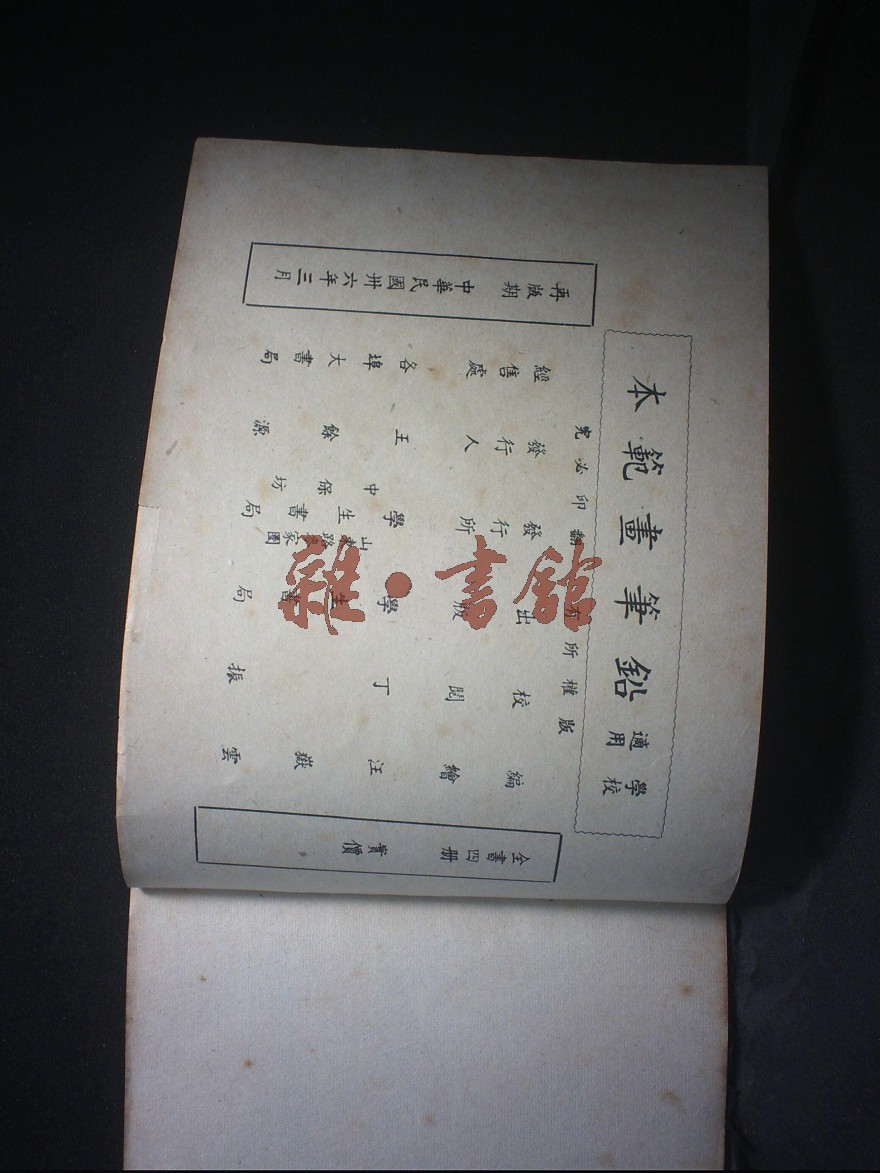 學校適用
鉛筆畫範本
版權所有 翻印必究
全書四册 實價
編繪 汪嶽雲
校閱 丁振
出版 學生書局
發行所 學生書局
山 路 家圈
中保坊
發行人 王餘源
經售處 各埠大書局
再版期 中華民國卅六年三月
雜·書館